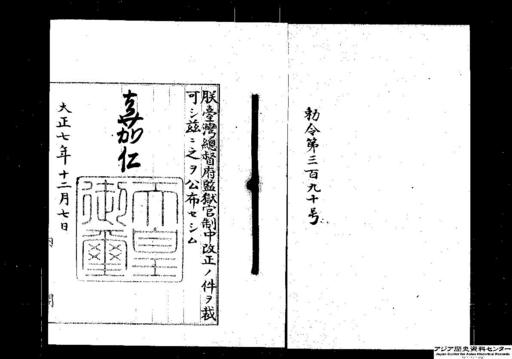 勅令第三百九十号
朕臺灣總督府監獄官制中改正ノ件ヲ裁
可シ玆ニ之ヲ公布セシム
嘉仁
天皇
御璽
大正七年十二月七日
内閣
アジア歴史資料センター
Japan Center for Asian Historical Records